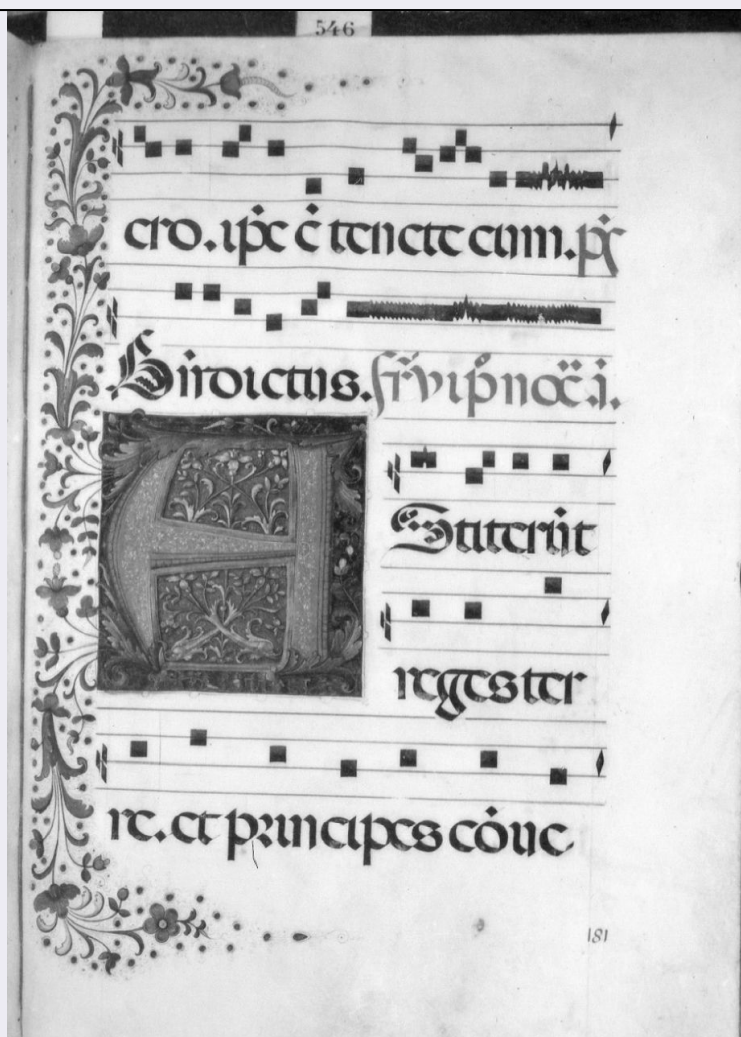 546
cro. ip̄e ē tenete eum. p̄s
Bn̄dictus. fr̄ vi p̄ noc̄. i.
A
Stiterūt
reges ter
re. et principes cōue
181